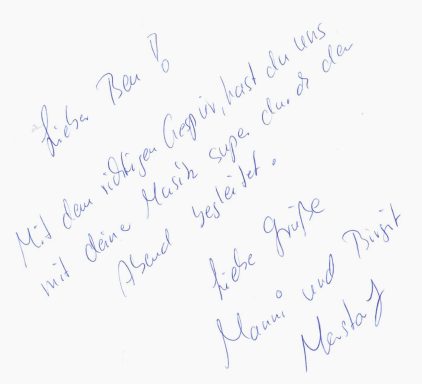 Lieber Ben!
Mit dem richtigen Gespür, hast du uns
mit deine Musik super durch den
Abend begleitet.
Liebe Grüße
Manni und Birgit